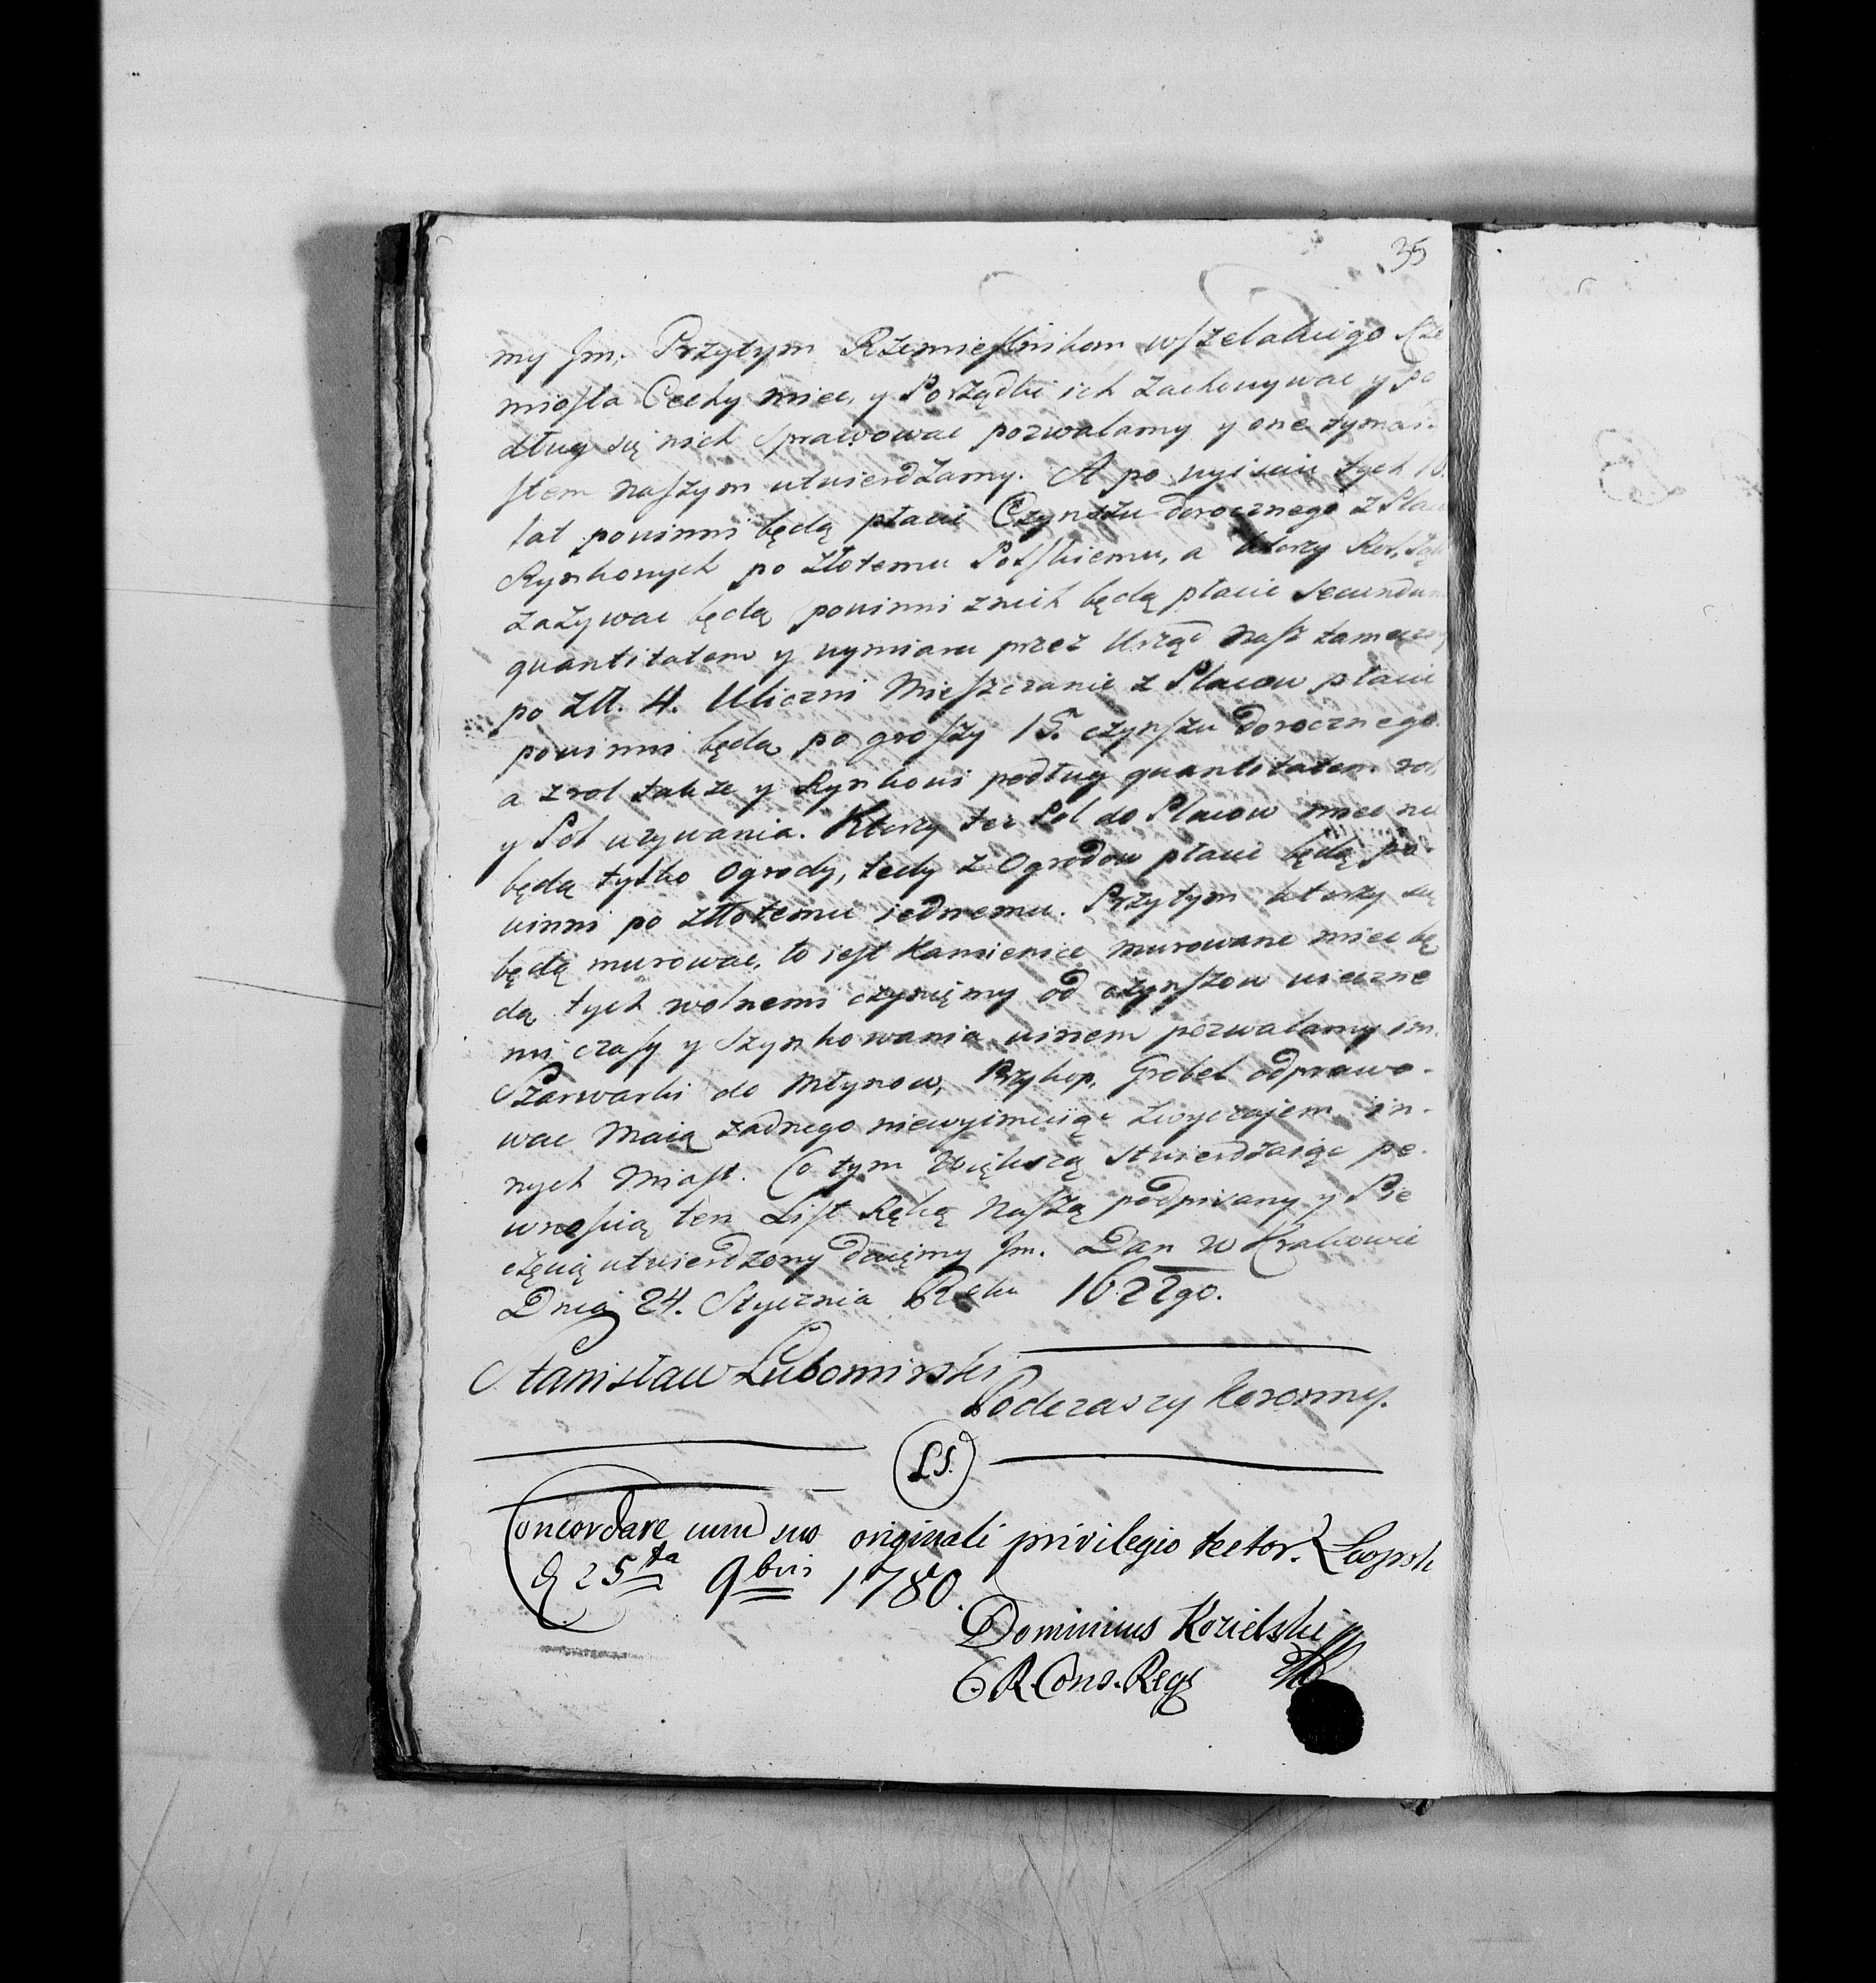 35
my Jm. Przytym Rzemieſlnikom wſzelakiego Rze
mioſla Cechy miec, y Porządki ich zachowywac y po
dług się nich sprawowac pozwalamy y one tym Li-
ſtem naſzym utwierdzamy. A po wyisciu tych 10.
lat powinni będą płacic Czynszu dorocznego z Plac
Rynkowych po złotemu Polſkiemu, a ktorzy Rol,
zazywac będą powinni znich będą płacic secundum
quantitatem y wymiaru przez Urząd naſz
po złł. 4. Uliczni Mieſzczanie z Placow płacic
powinni będą po groſzy 15. czynſzu dorocznego
a zrol także y Rynkowi podług quantitatem rol
y Pol uzywania. Ktorzy tez Pol do Placow miec nie
będą tylko Ogrody, tedy z Ogrodow płacic będą po-
winni po złłotemu iednemu. Przytym ktorzy się
będą murowac, to ieſt Kamienice murowane miec bę
dą tych wolnemi czynięmy od czynſzow wieczne
mi czaſy y szynkowania winem pozwalamy im.
Szarwarki do Młynow, Przykop, Grobel odprawo-
wac maią zadnego niewyimuiąc zwyczajem in-
nych Miaſt. Co tym większą stwierdzaiąc pe-
wnoſcią ten Liſt Ręką Naſzą podpisany y Pie
częcią utwierdzony daięmy Jm. Dan w Krakowie
Dnia 24. Stycznia Roku 1622go.
Stanisław Lubomirski
Podczaszy Koronny.
LS.
Concordare cum suo originali privilegio tector.
d 25ta 9bris 1780.
Dominicus Kozielski
C. R. Cons. Regs